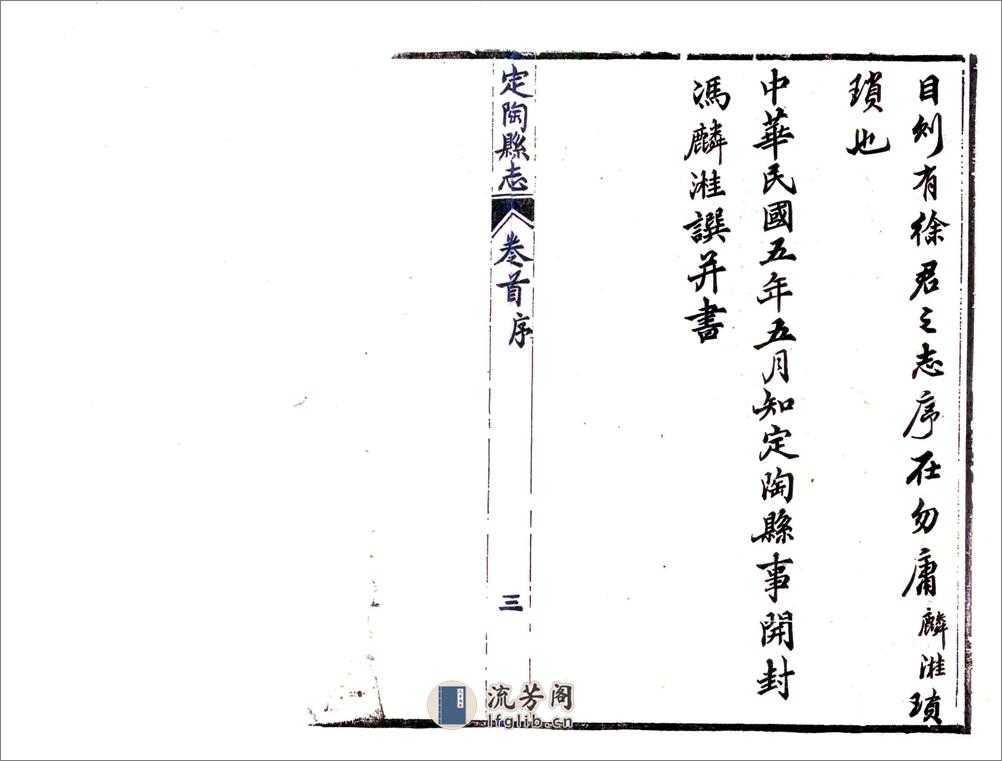 目則有徐君之志序在勿庸麟溎瑣
瑣也
中華民國五年五月知定陶縣事開封
馮麟溎譔并書
定陶縣志
卷首序
三
流芳阁
lfglib.cn